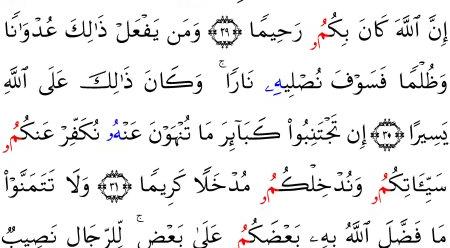 إِنَّ اللَّهَ كَانَ بِكُمُۥ رَحِيمًا ۝٢٩ وَمَن يَفْعَلْ ذَٰلِكَ عُدْوَٰنًا
وَظُلْمًا فَسَوْفَ نُصْلِيهِۦ نَارًا ۚ وَكَانَ ذَٰلِكَ عَلَى اللَّهِ
يَسِيرًا ۝٣٠ إِن تَجْتَنِبُوا۟ كَبَآئِرَ مَا تُنْهَوْنَ عَنْهُۥ نُكَفِّرْ عَنكُمُۥ
سَيِّـَٔاتِكُمُۥ وَنُدْخِلْكُمُۥ مُدْخَلًا كَرِيمًا ۝٣١ وَلَا تَتَمَنَّوْا۟
مَا فَضَّلَ اللَّهُ بِهِۦ بَعْضَكُمُۥ عَلَىٰ بَعْضٍ ۚ لِّلرِّجَالِ نَصِيبٌ